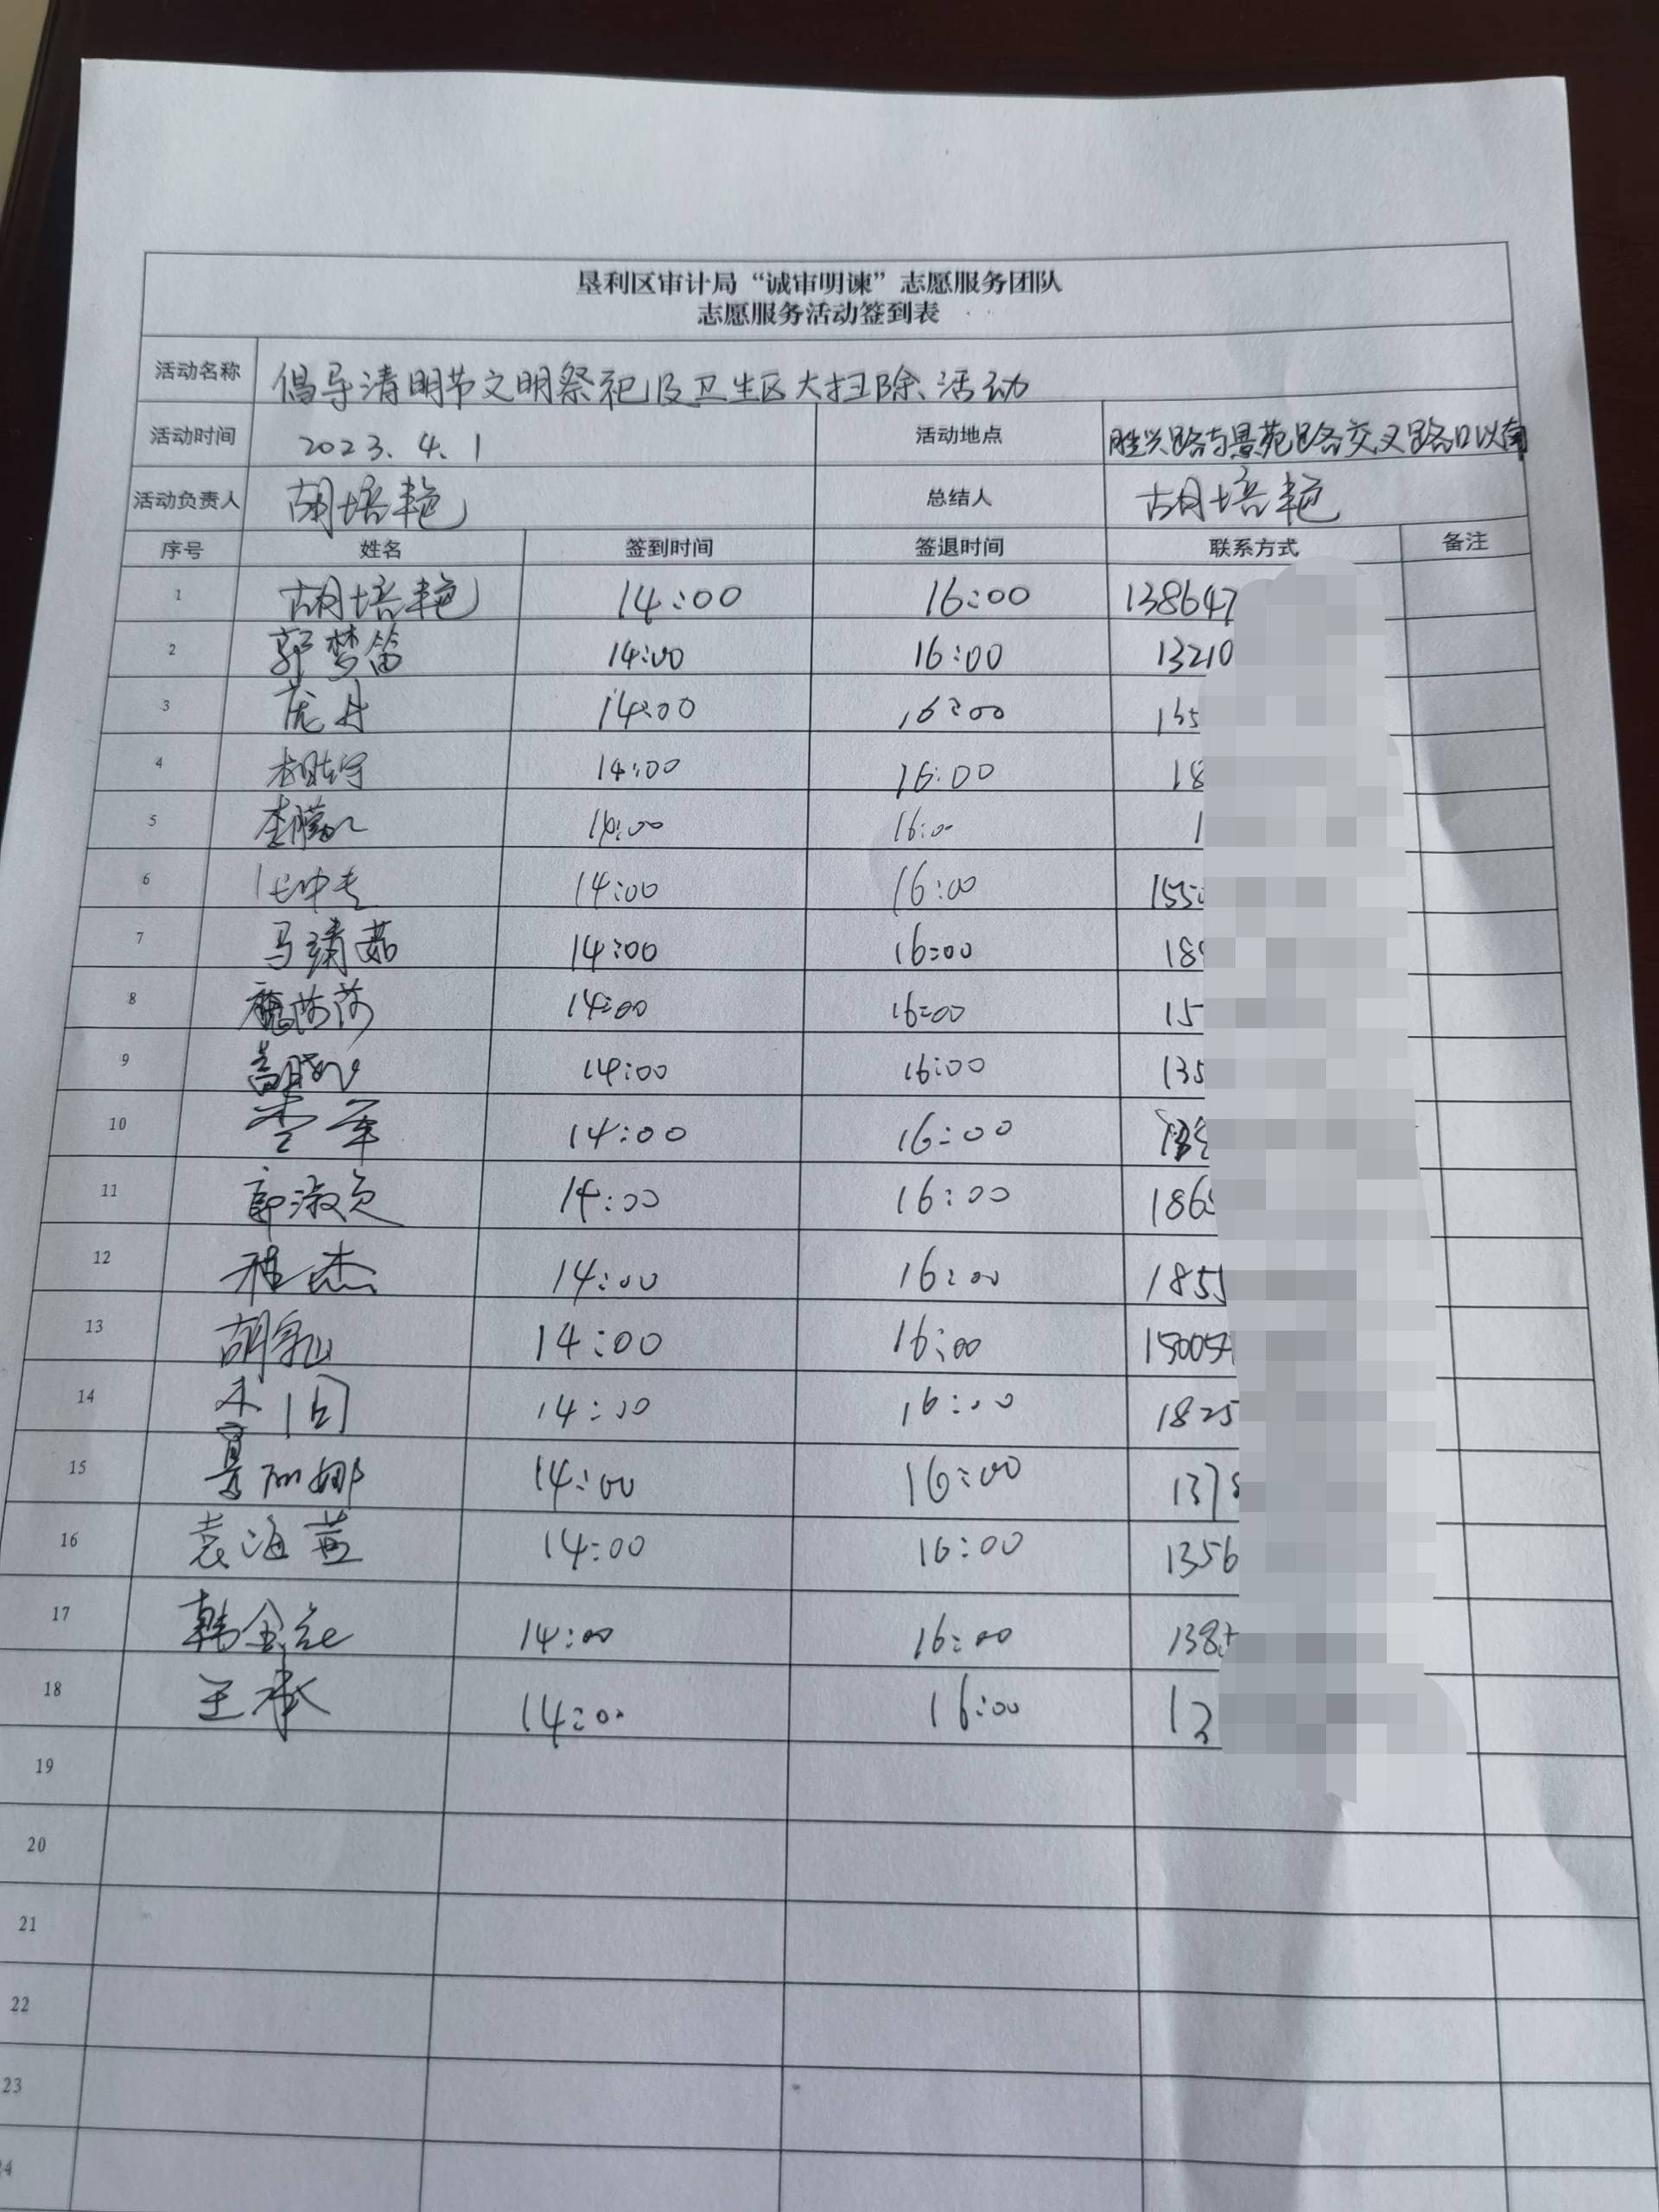 垦利区审计局“诚审明谏”志愿服务团队
志愿服务活动签到表
活动名称 倡导清明节文明祭祀及卫生区大扫除活动
活动时间 2023.4.1 活动地点 胜兴路与景苑路交叉路口以南
活动负责人 胡培艳 总结人 胡培艳
序号 姓名 签到时间 签退时间 联系方式 备注
1 胡培艳 14:00 16:00 138647
2 郭梦笛 14:00 16:00 13210
3 庞丹 14:00 16:00 135
4 14:00 16:00 18
5 14:00 16:00 1
6 14:00 16:00 155
7 马靖茹 14:00 16:00 18
8 魏莎莎 14:00 16:00 15
9 14:00 16:00 135
10 李军 14:00 16:00
11 郭淑贞 14:00 16:00 186
12 程杰 14:00 16:00 185
13 14:00 16:00 15005
14 14:00 16:00 1825
15 景丽娜 14:00 16:00 137
16 袁海燕 14:00 16:00 1356
17 14:00 16:00 138
18 王承 14:00 16:00 13
19
20
21
22
23